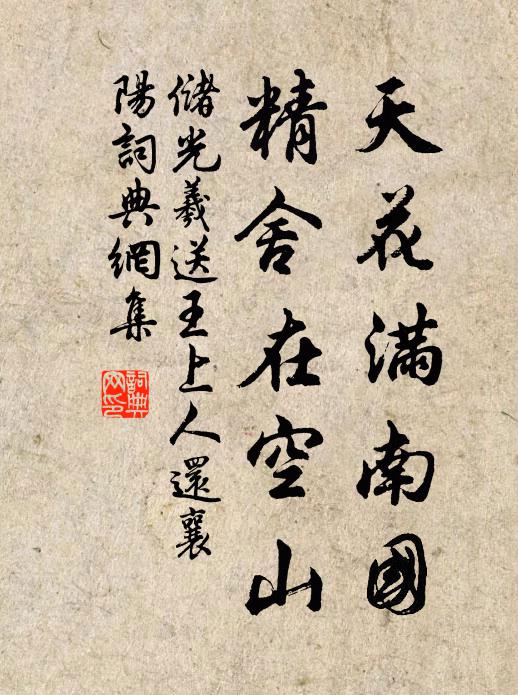 天花滿南國
精舍在空山
儲光羲送王上人還襄
陽詞典網集
詞典
网印